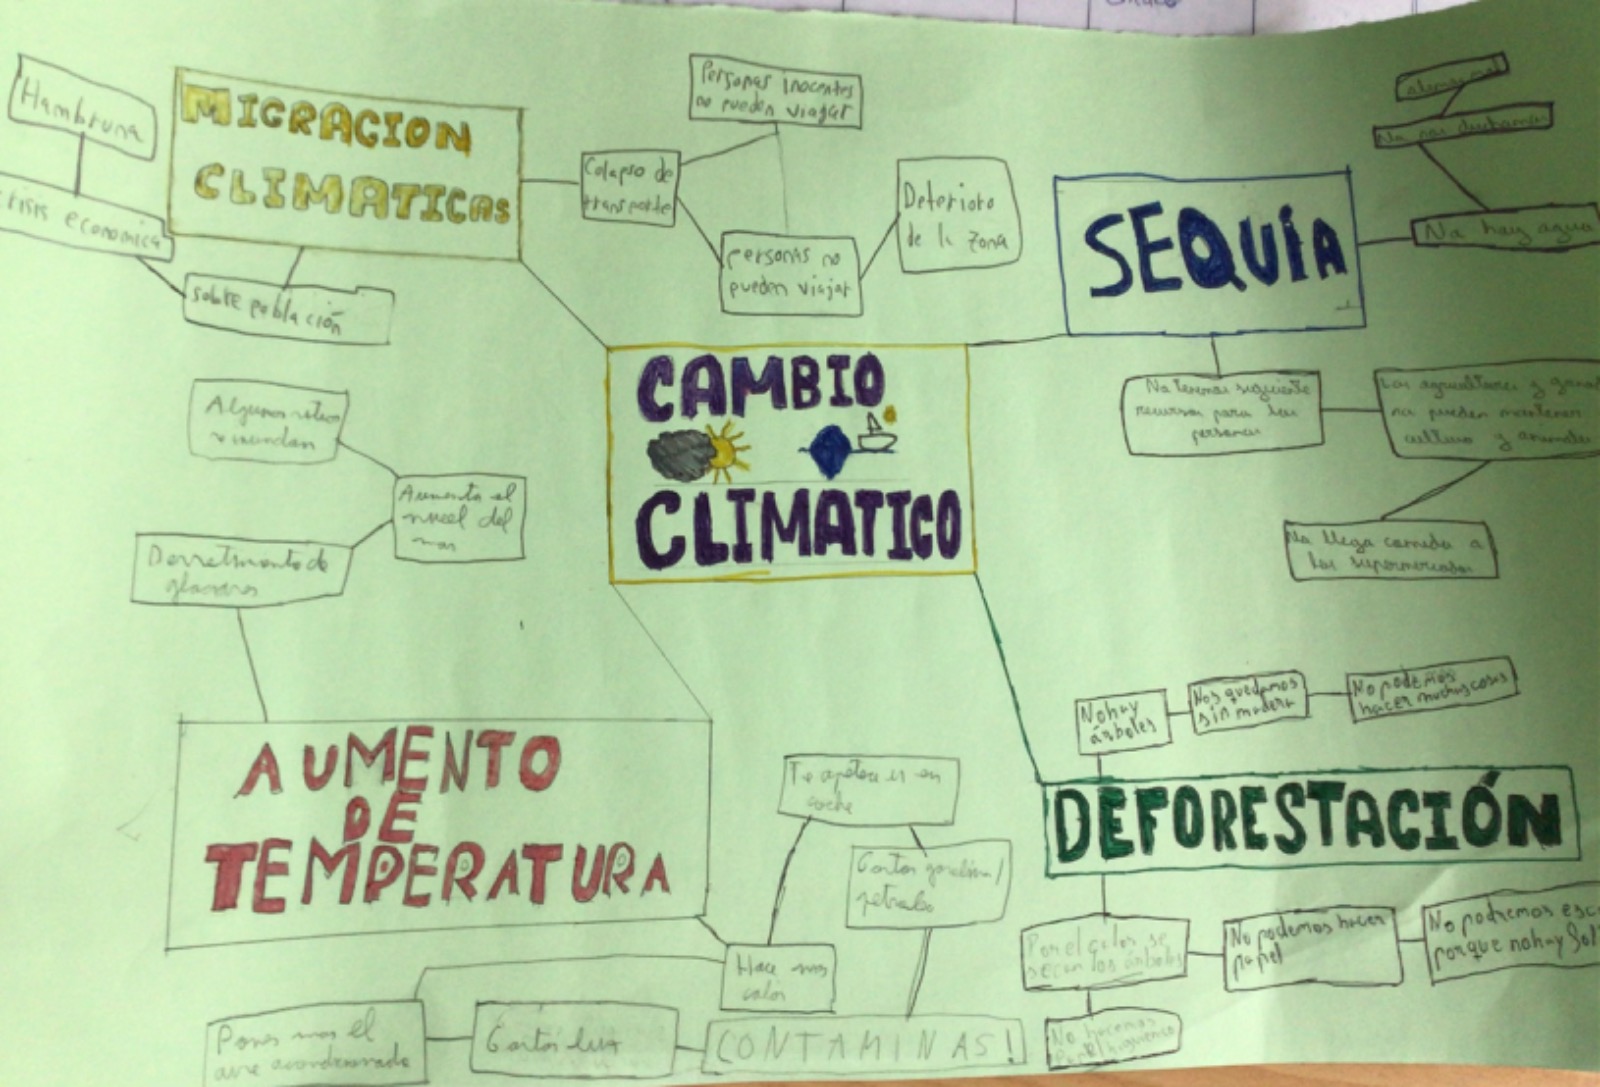 MIGRACION
CLIMATICAS
Hambruna
crisis economica
sobre población
Colapso de
transporte
Personas inocentes
no pueden viajar
personas no
pueden viajar
Deterioro
de la zona
SEQUÍA
No hay agua
No nos duchamos
olemos mal
No tenemos suguiente
recursos para las
personas
Los agricultores y gana
no pueden mantener
cultivo y animales
No llega comida a
los supermercados
CAMBIO
CLIMATICO
Algunos sitios
se inundan
Aumenta el
nivel del
mar
Derretimiento de
glaciares
AUMENTO
DE
TEMPERATURA
Hace mas
calor
Te apetece ir en
coche
Gastas gasolina/
petroleo
Pones mas el
aire acondicionado
Gastas luz
CONTAMINAS!
DEFORESTACIÓN
No hay
árboles
Nos quedamos
sin madera
No podemos
hacer muchas cosas
Por el calor se
secan los árboles
No podemos hacer
papel
No podremos esc
porque no hay fol
No hacemos
Papel higuienico